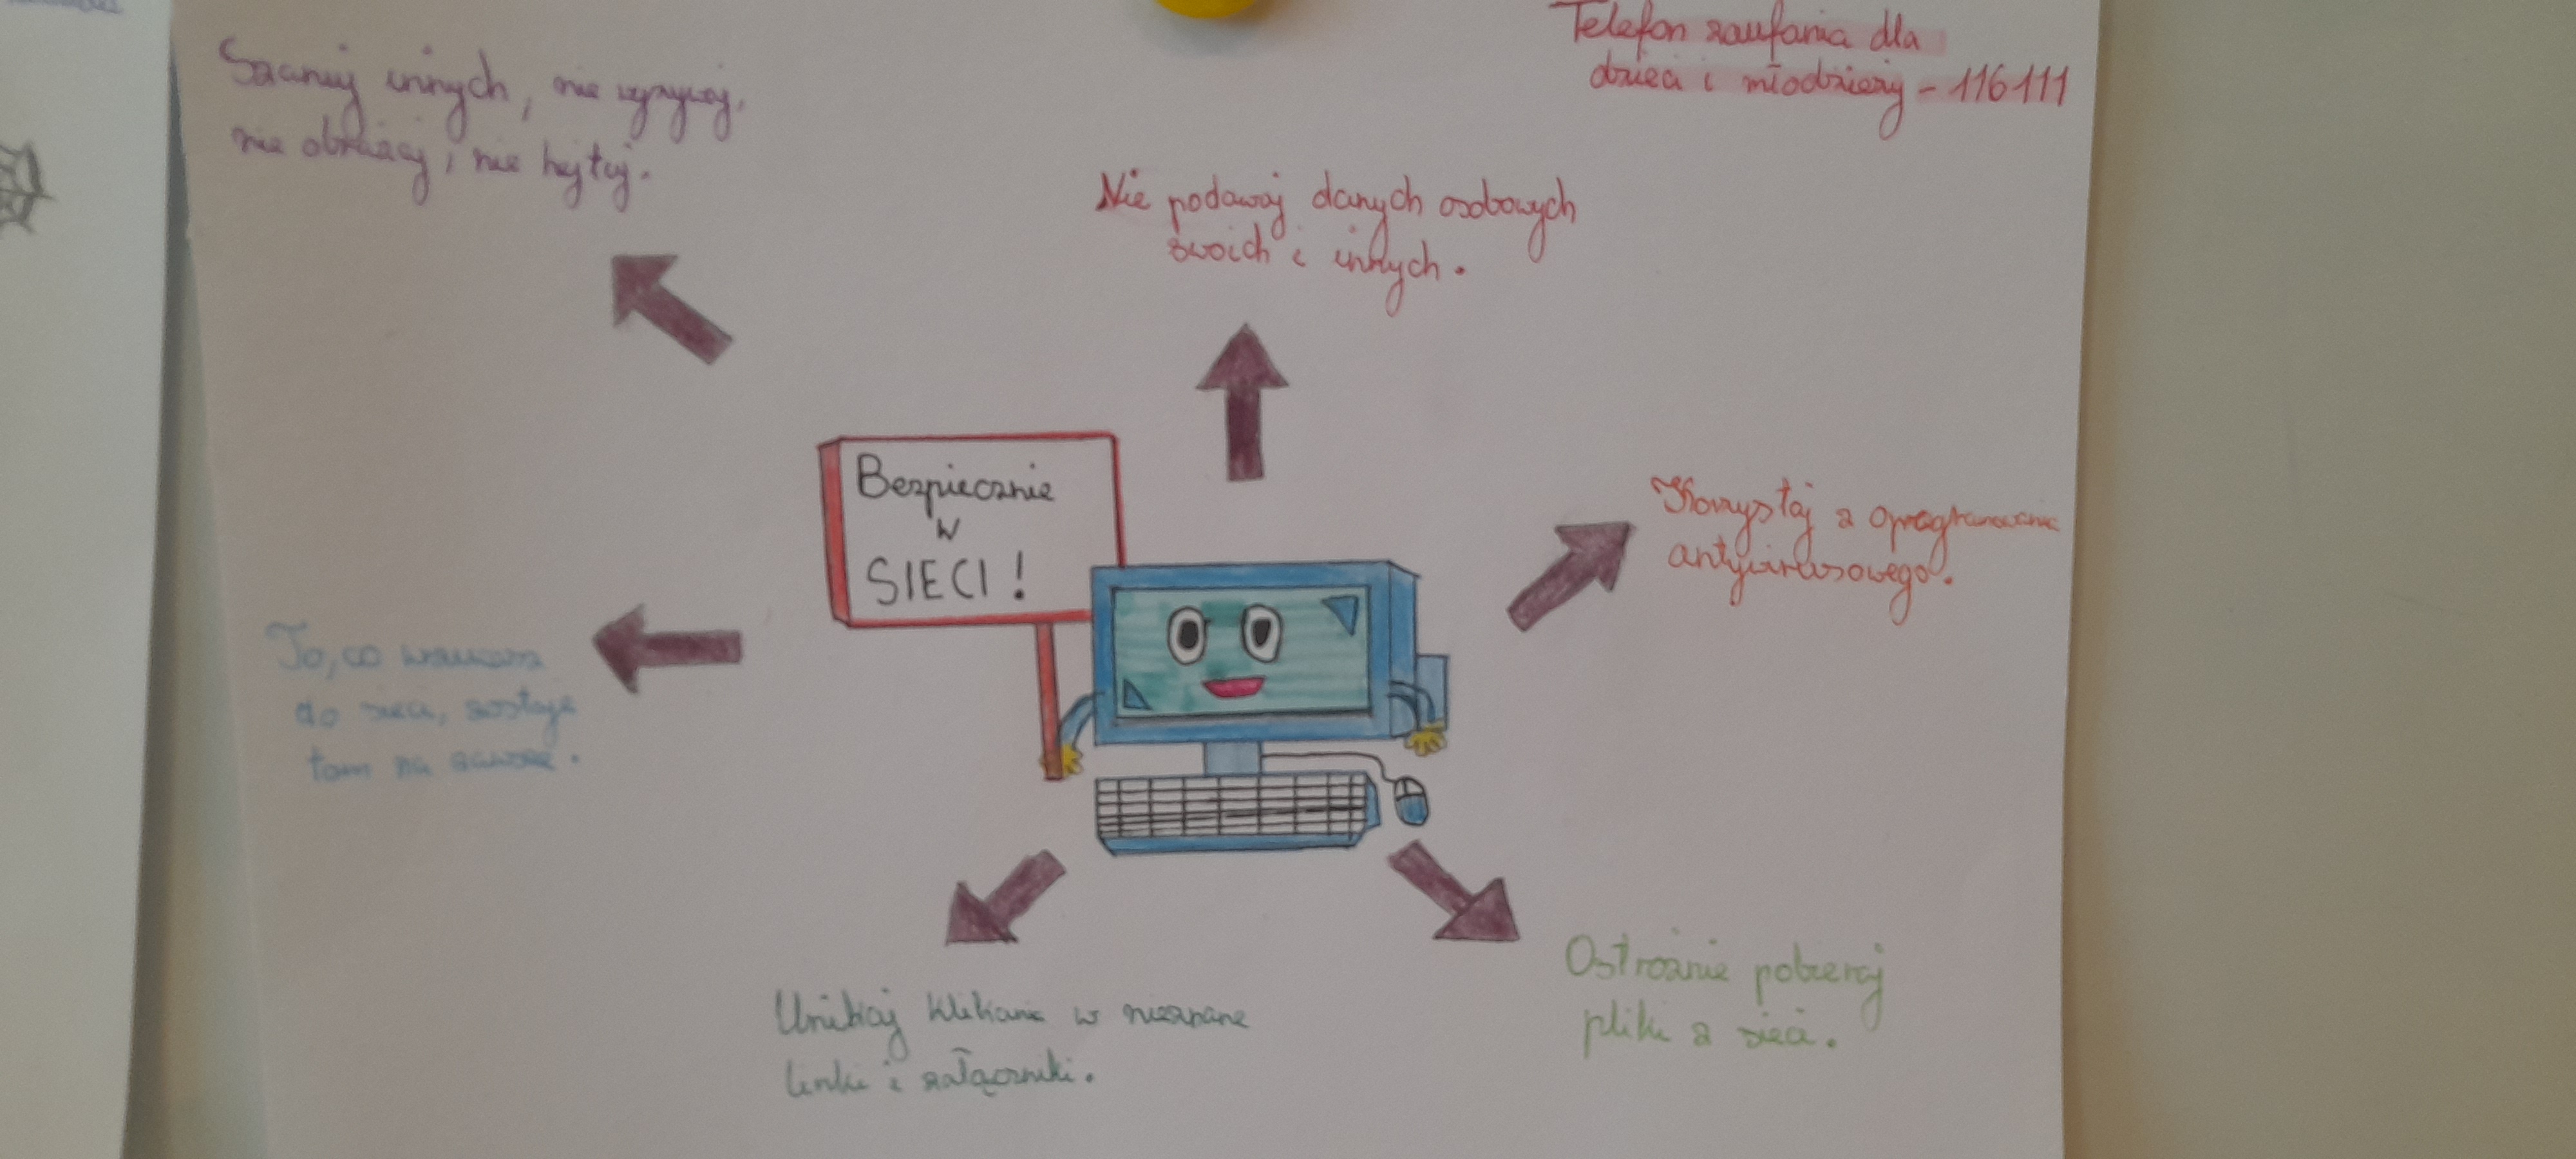 Telefon zaufania dla
dzieci i młodzieży - 116111
Szanuj innych, nie wyzywaj,
nie obrażaj, nie hejtuj.
Nie podawaj danych osobowych
swoich i innych.
Bezpiecznie
w
SIECI!
Korzystaj z oprogramowania
antywirusowego.
To, co wrzucasz
do sieci, zostaje
tam na zawsze.
Ostrożnie pobieraj
pliki z sieci.
Unikaj klikania w nieznane
linki i załączniki.